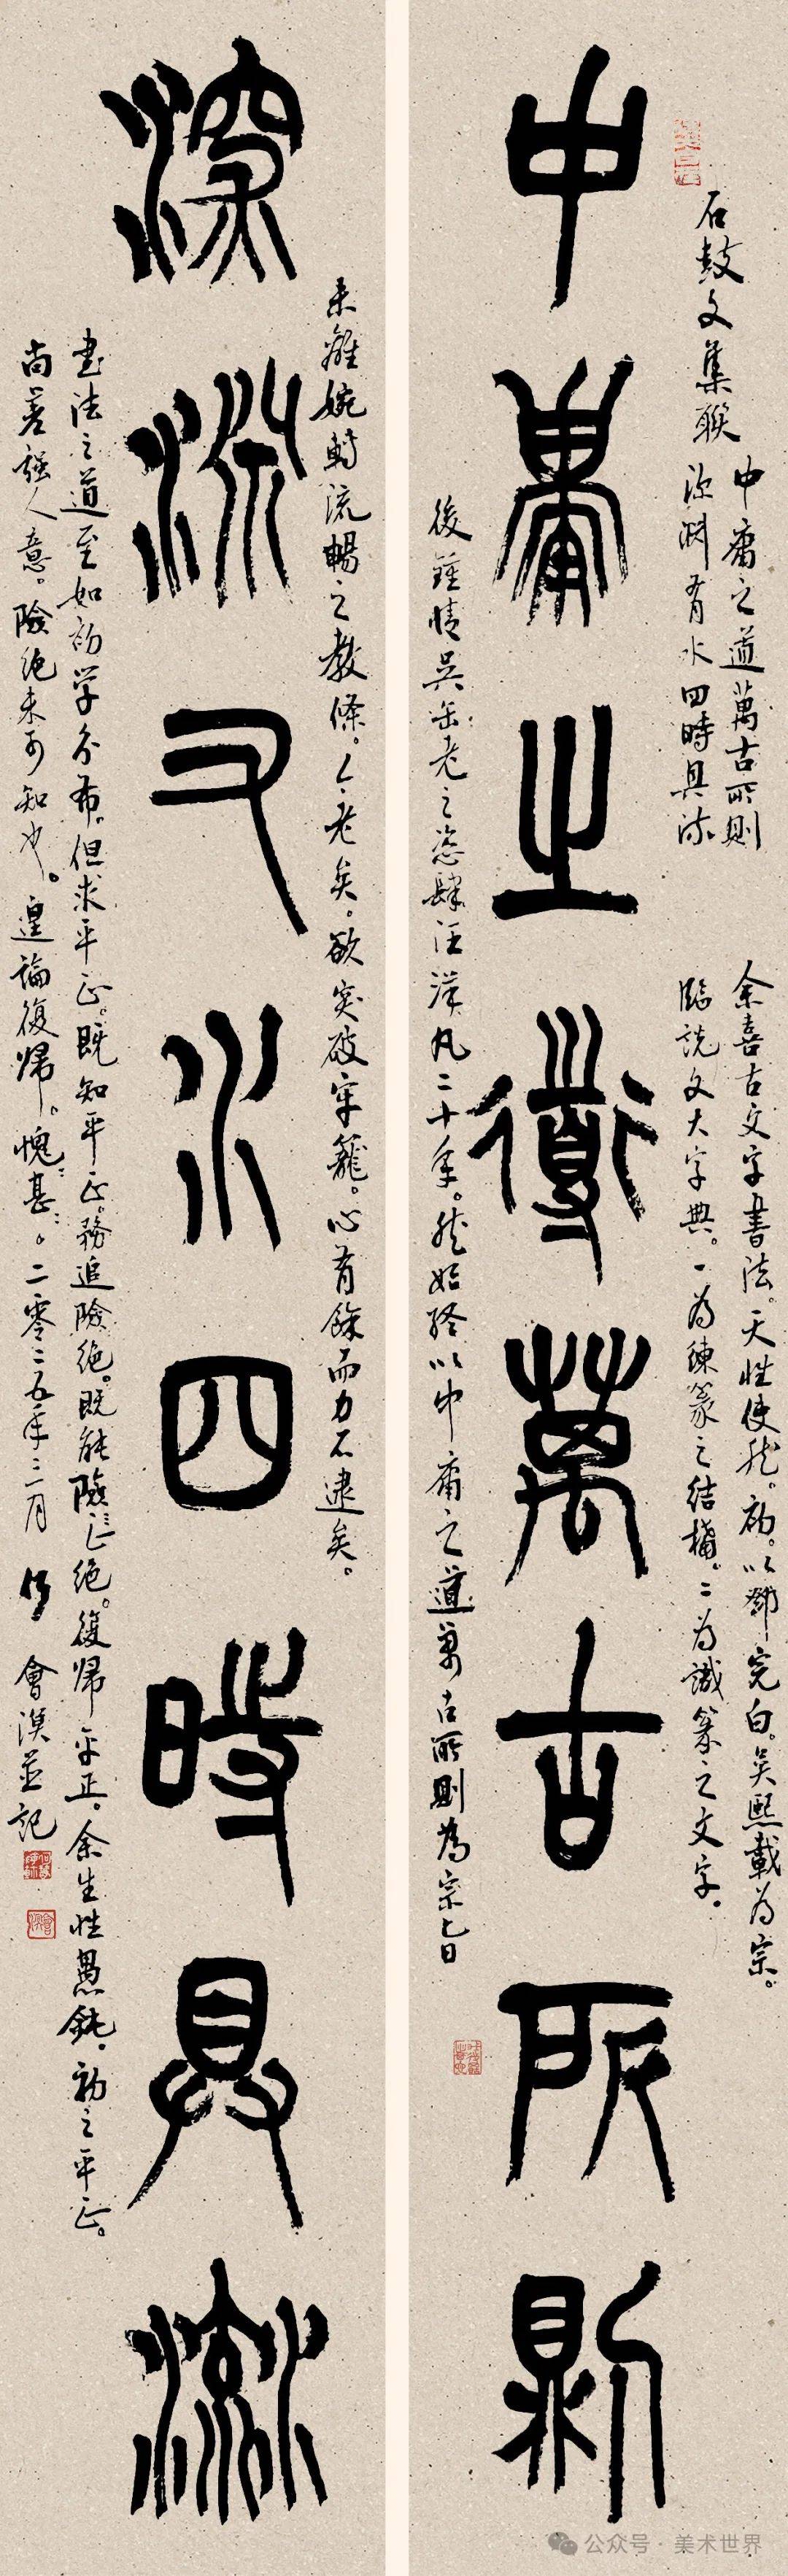 中庸之道萬古所則
石鼓文集联
中庸之道萬古所則
深渊有水四時具流
余喜古文字書法。天性使然。初。以鄧完白。吴熙載为宗。
臨説文大字典。一为練篆之结構。二为識篆之文字。
後鍾情吴缶老之恣肆汪洋凡二十年。然始終以中庸之道萬古所則為宗旨
深渊又水四時具流
未離婉轉流暢之教條。人老矣。欲突破牢籠。心有餘而力不逮矣。
书法之道至如初学分布。但求平正。既知平正。務追險絶。既能險绝。復歸平正。余生性愚鈍。初之平正。
尚差强人意。險绝未可知也。遑論復歸。愧甚。二零二五年三月 會漠並記
公众号·美术世界